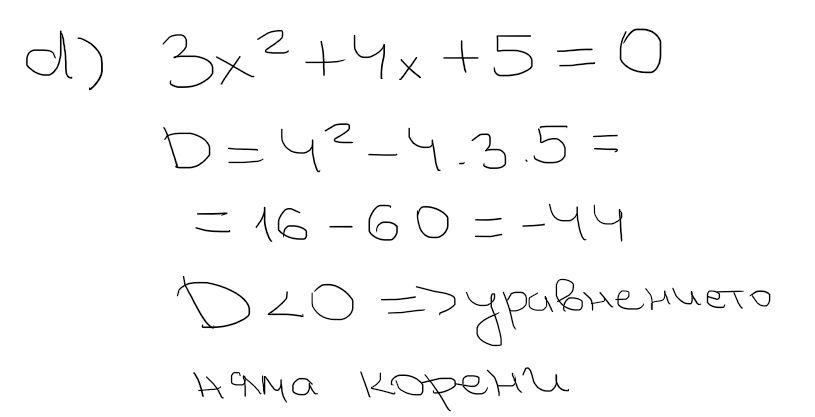 d) 3x² + 4x + 5 = 0
D = 4² - 4.3.5 =
= 16 - 60 = -44
D < 0 => уравнението
няма корени